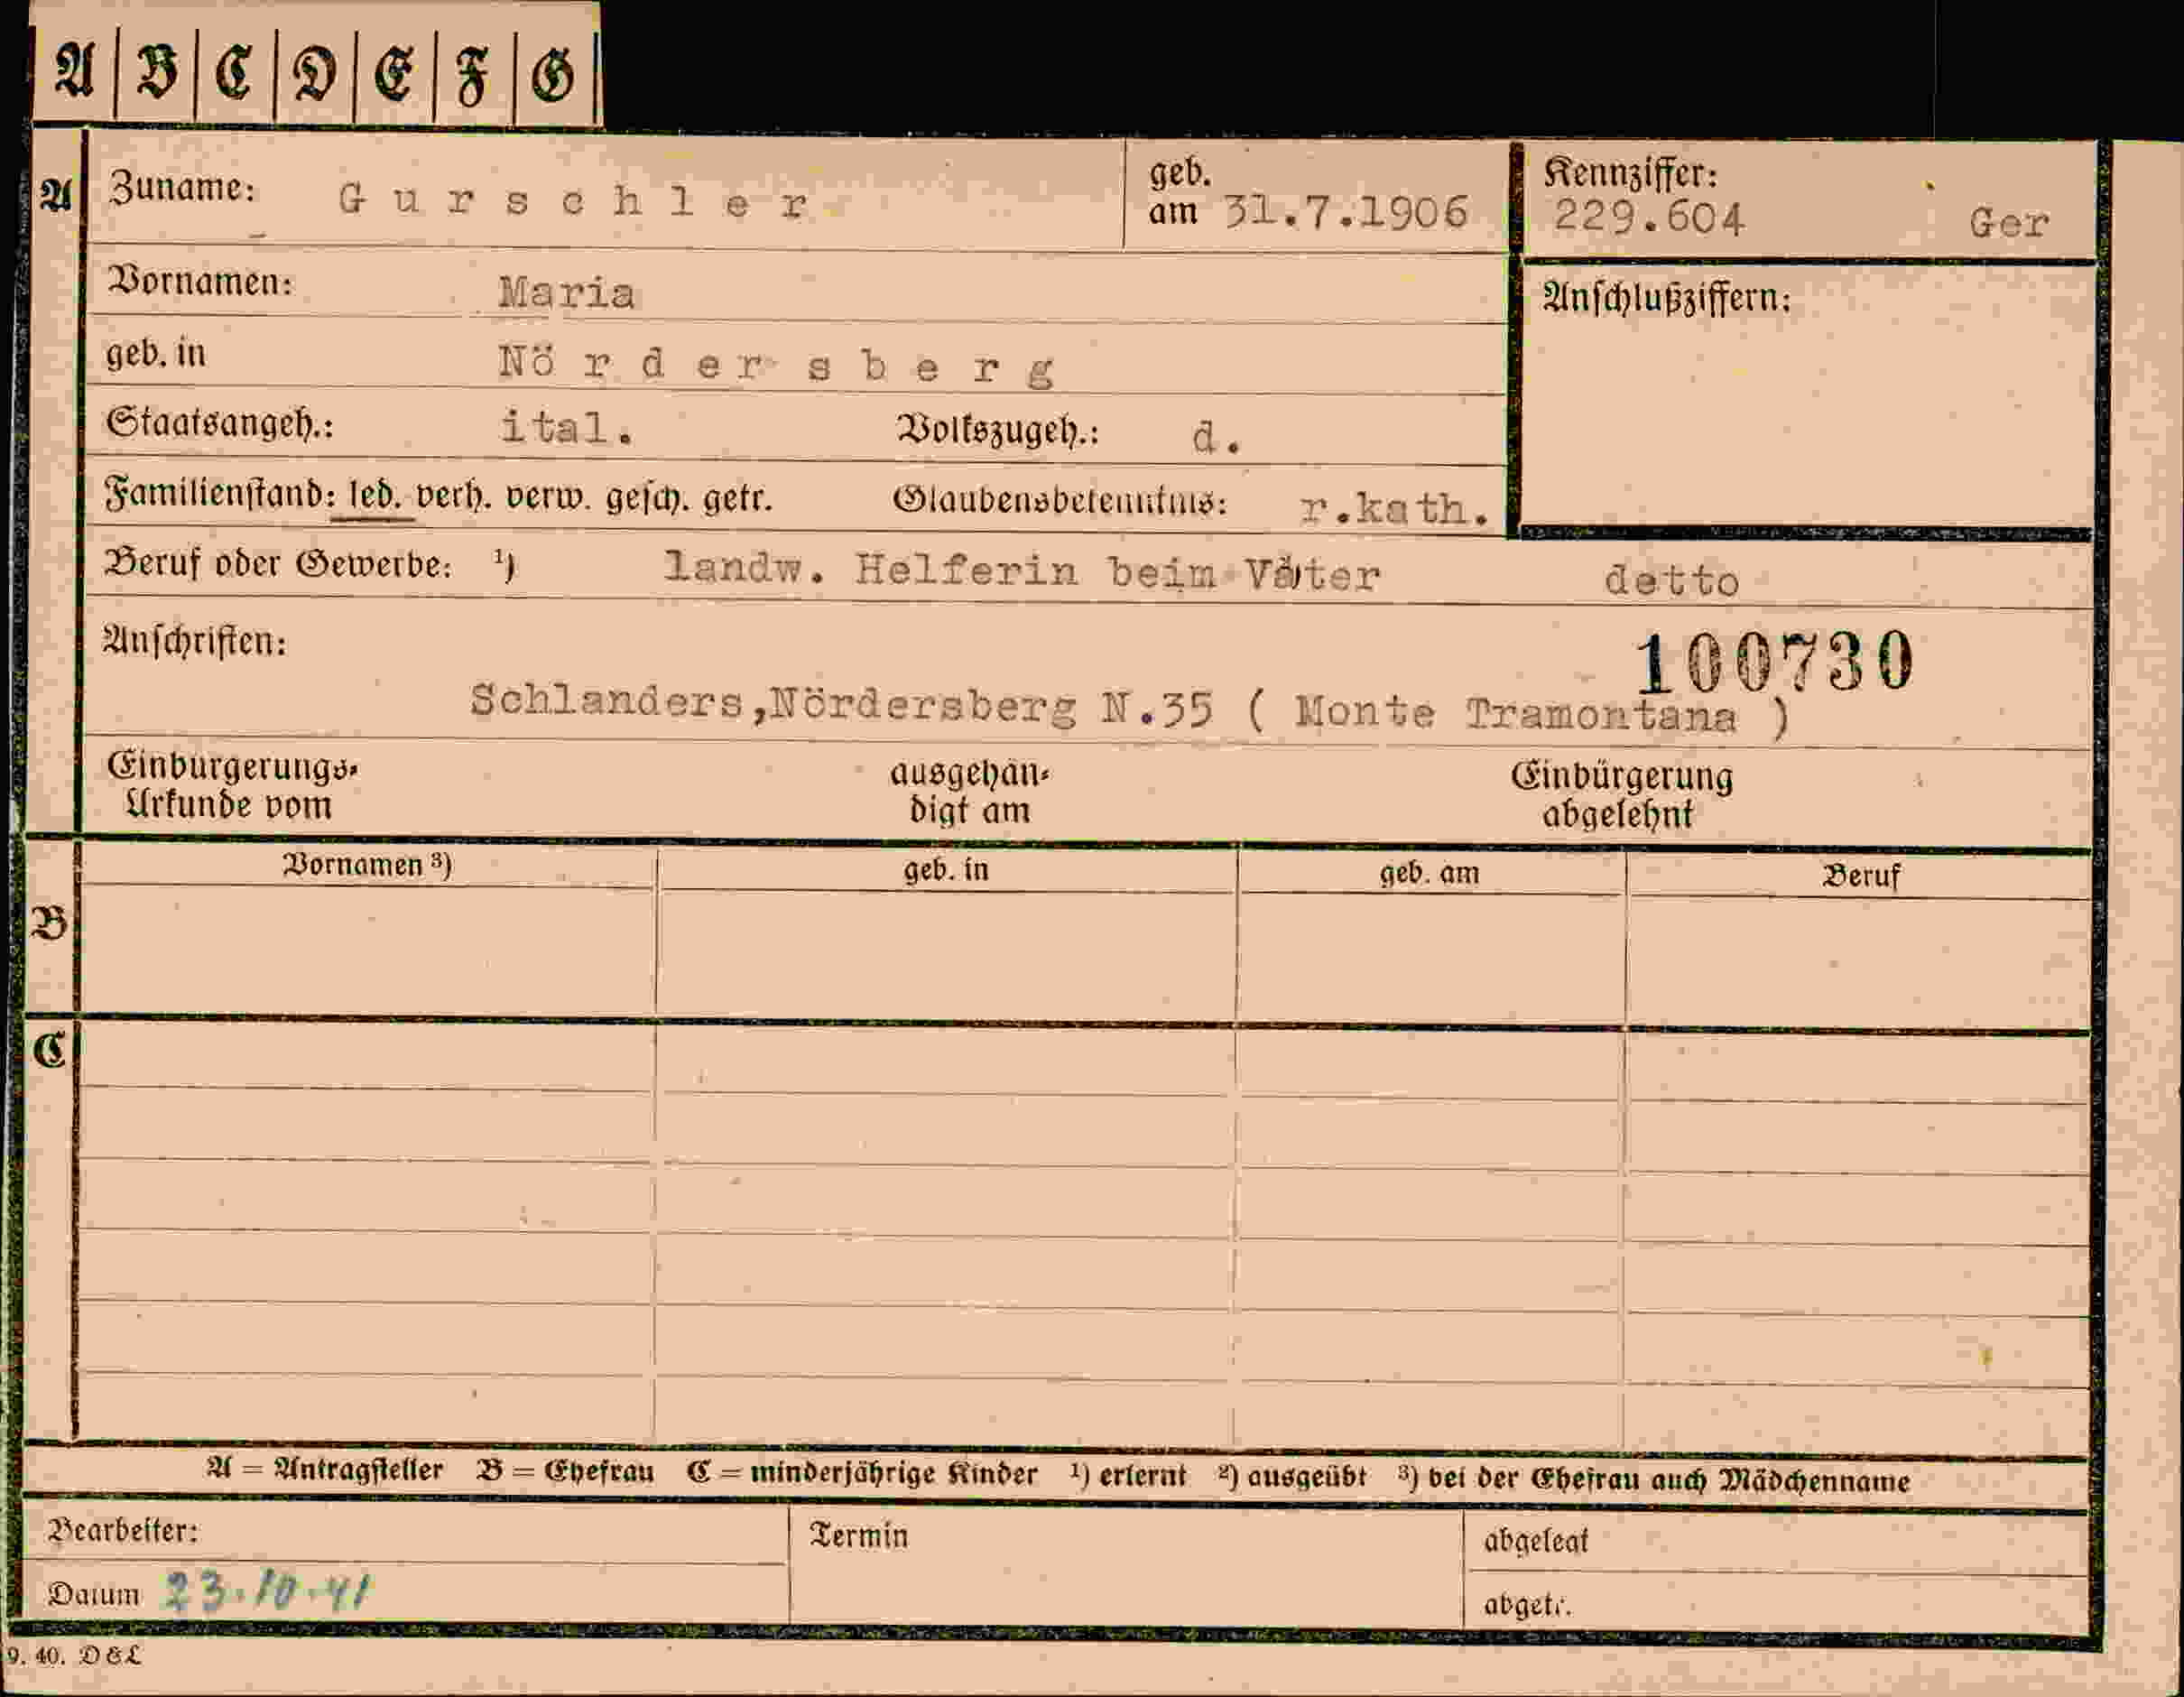 A B C D E F G
A Zuname: Gurschler geb. am 31.7.1906 Kennziffer: 229.604 Ger
Vornamen: Maria Anschlußziffern:
geb. in Nördersberg
Staatsangeh.: ital. Volkszugeh.: d.
Familienstand: led. verh. verw. gesch. getr. Glaubensbekenntnis: r.kath.
Beruf oder Gewerbe: ¹) landw. Helferin beim Vater detto
Anschriften: 100730
Schlanders,Nördersberg N.35 ( Monte Tramontana )
Einbürgerungs- ausgehän- Einbürgerung
Urkunde vom digt am abgelehnt
Vornamen ³) geb. in geb. am Beruf
B
C
A = Antragsteller B = Ehefrau C = minderjährige Kinder ¹) erlernt ²) ausgeübt ³) bei der Ehefrau auch Mädchenname
Bearbeiter: Termin abgelegt
Datum 23.10.41 abgetr.
9. 40. D&L